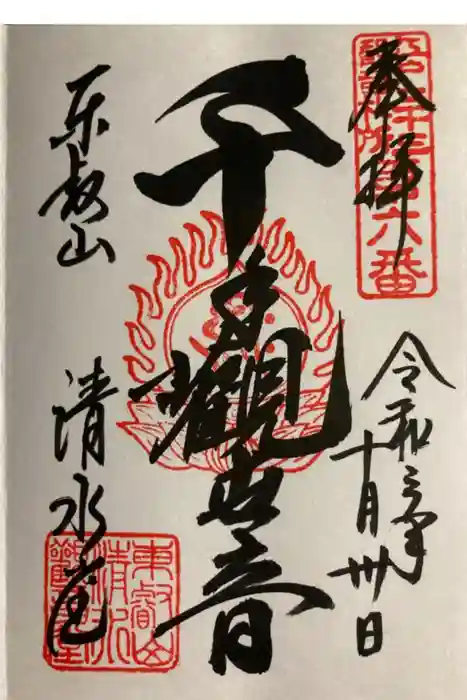 奉拝
令和三年
十月卅日
千手観世音
東叡山
清水堂
東叡山
清水
觀音堂